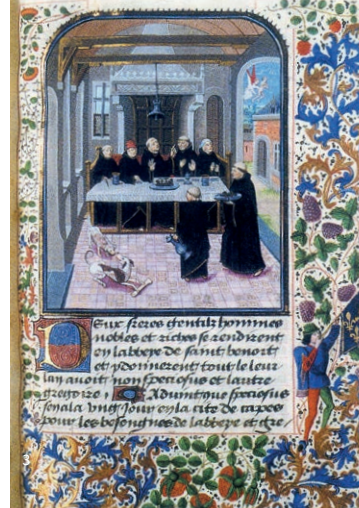 Eux freres gentilz hommes
nobles et riches se rendirent
en labbeye de saint benoit
et y donnerent tout leur
auoit non speciosus et lautre
gregoire Aduint que speciosus
sen ala vng Jour en la cite de capes
pour les besongnes de labbeye et gre